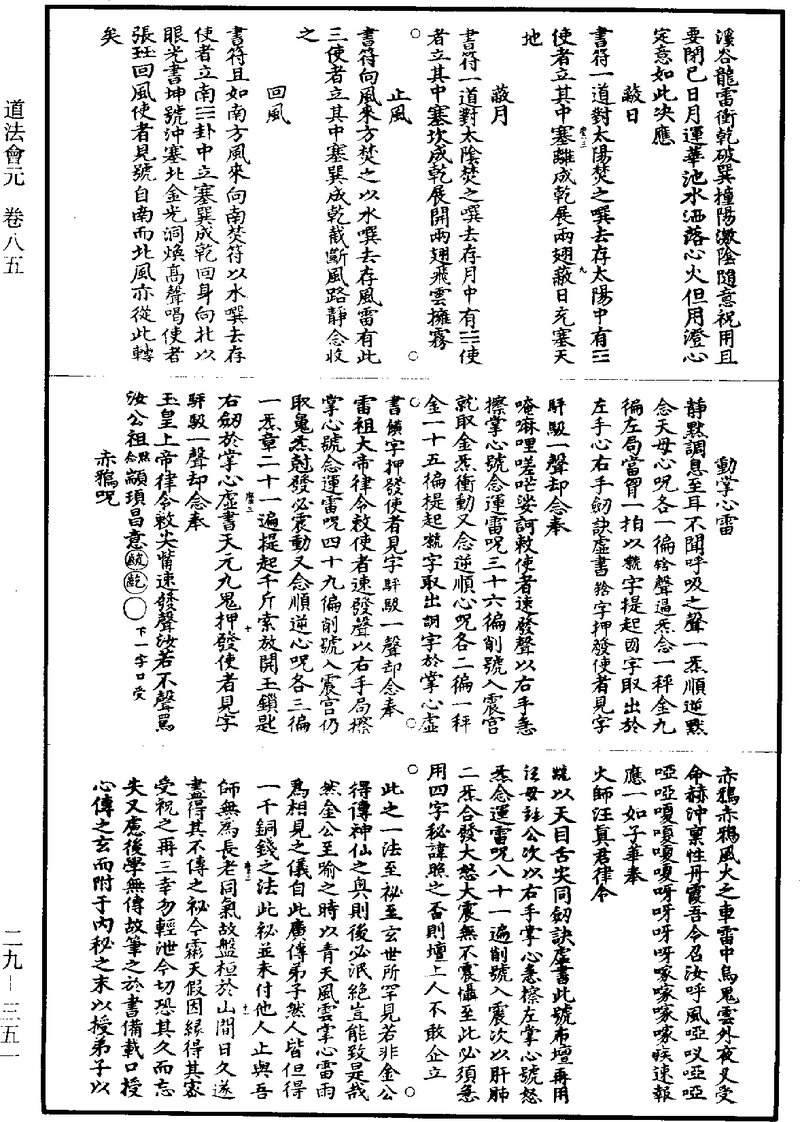 道法會元 卷八五
二九—三五一
溪谷龍雷衝乾破巽撞陽激陰隨意祝用且
要閉巳日月運華池水洒落心火但用澄心
定意如此决應
蔽日
書符一道對太陽焚之噀去存太陽中有☰
使者立其中塞離成乾展兩翅蔽日充塞天
地
蔽月
書符一道對太陰焚之噀去存月中有☵使
者立其中塞坎成乾展開兩翅飛雲擁霧
止風
書符向風來方焚之以水噀去存風雷有此
三使者立其中塞巽成乾截斷風路靜念收
之
回風
書符且如南方風來向南焚符以水噀去存
使者立南☴卦中立塞巽成乾回身向北以
眼光書坤號沖塞北金光洞煥高聲喝使者
張珏回風使者見號自南而北風亦從此轉
矣
動掌心雷
靜默調息至耳不聞呼吸之聲一炁順逆默
念天母心呪各一徧聲逼炁念一秤金九
徧左局當胷一拍以字提起字取出於
左手心右手劒訣虛書字押發使者見字
馯馺一聲却念奉
唵嘛哩嗟哤娑訶敕使者速發聲以右手急
擦掌心號念運雷呪三十六徧削號入震宫
就取金炁衝動又念逆順心呪各二徧一秤
金一十五徧提起字取出字於掌心虛
書字押發使者見字馯馺一聲却念奉
雷祖大帝律令敕使者速發聲以右手局擦
掌心號念運雷呪四十九徧削號入震宫仍
取炁尅發必震動又念順逆心呪各三徧
一炁章二十一遍提起千斤索放開玉鎖匙
右劒於掌心虛書天元九鬼押發使者見字
馯馺一聲却念奉
玉皇上帝律令敕尖觜速發聲汝若不聲罵
汝公祖默念顓頊昌意下一字口受
赤鴉呪
赤鴉赤鴉風火之車雷中烏鬼雲外夜叉受
命赫沖稟性丹霞吾今召汝呼風啞叹啞啞
啞啞嗄嗄嗄嗄呀呀呀呀哆哆哆疾速報
應一如子華奉
火師汪真君律令
以天目舌尖同劒訣虛書此號布壇再用
公次以右手掌心急擦左掌心號怒
炁念運雷呪八十一遍削號入震次以肝肺
二炁合發大怒大震無不震懾至此必須急
用四字秘諱照之否則壇上人不敢企立
此之一法至祕至玄世所罕見若非金公
得傳神仙之奥則後必泯絶豈能致是哉
然金公至喻之時以青天風雲掌心雷雨
爲相見之儀自此廣傳弟子然人皆但得
一千銅錢之法此祕並未付他人止與吾
師無爲長老同氣故盤桓於山間日久遂
盡得其不傳之祕今霖天假因縁得其密
受祝之再三幸勿輕泄今切恐其久而忘
失又慮後學無傳故筆之於書備載口授
心傳之玄而附于内秘之末以授弟子以